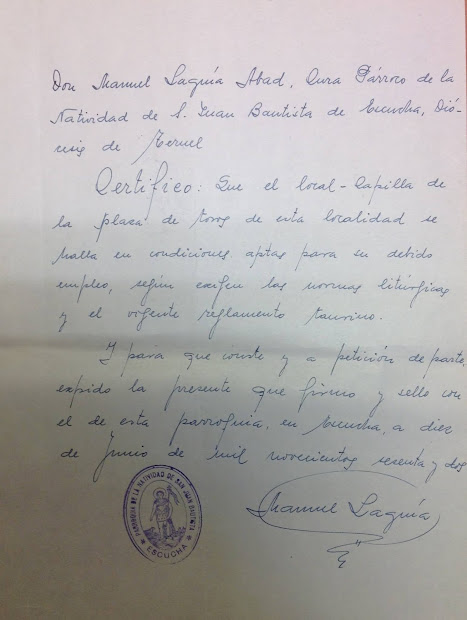 Don Manuel Laguía Abad, Cura Párroco de la
Natividad de S. Juan Bautista de Escucha, Dió-
cesis de Teruel
Certifico: Que el local-Capilla de
la plaza de toros de esta localidad se
halla en condiciones aptas para su debido
empleo, según exigen las normas litúrgicas
y el vigente reglamento taurino.
Y para que conste y a petición de parte,
expido la presente que firmo y sello con
el de esta parroquia, en Escucha, a diez
de Junio de mil novecientos sesenta y dos
PARROQUIA DE LA NATIVIDAD DE SAN JUAN BAUTISTA
ESCUCHA
Manuel Laguía